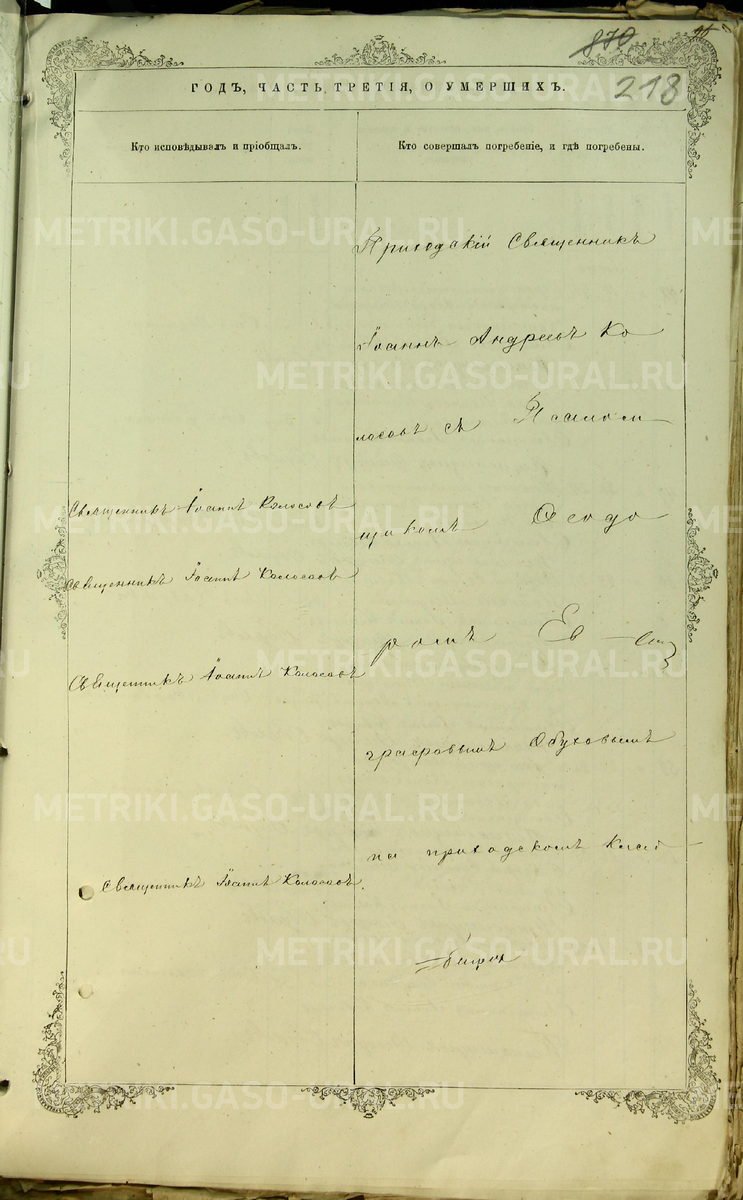 870
218
ГОДЪ, ЧАСТЬ ТРЕТІЯ, О УМЕРШИХЪ.
Кто исповѣдывалъ и пріобщалъ.
Кто совершалъ погребеніе, и гдѣ погребены.
Приходскій Священникъ
Іоаннъ Андреевъ Ко
лосовъ съ Псалом
Священникъ Іоаннъ Колосовъ
щикомъ Ѳеодо
Священникъ Іоаннъ Колосовъ
ромъ Ев
Священникъ Іоаннъ Колосовъ
графовымъ Обуховымъ
на приходскомъ клад
Священникъ Іоаннъ Колосовъ
бищѣ
METRIKI.GASO-URAL.RU